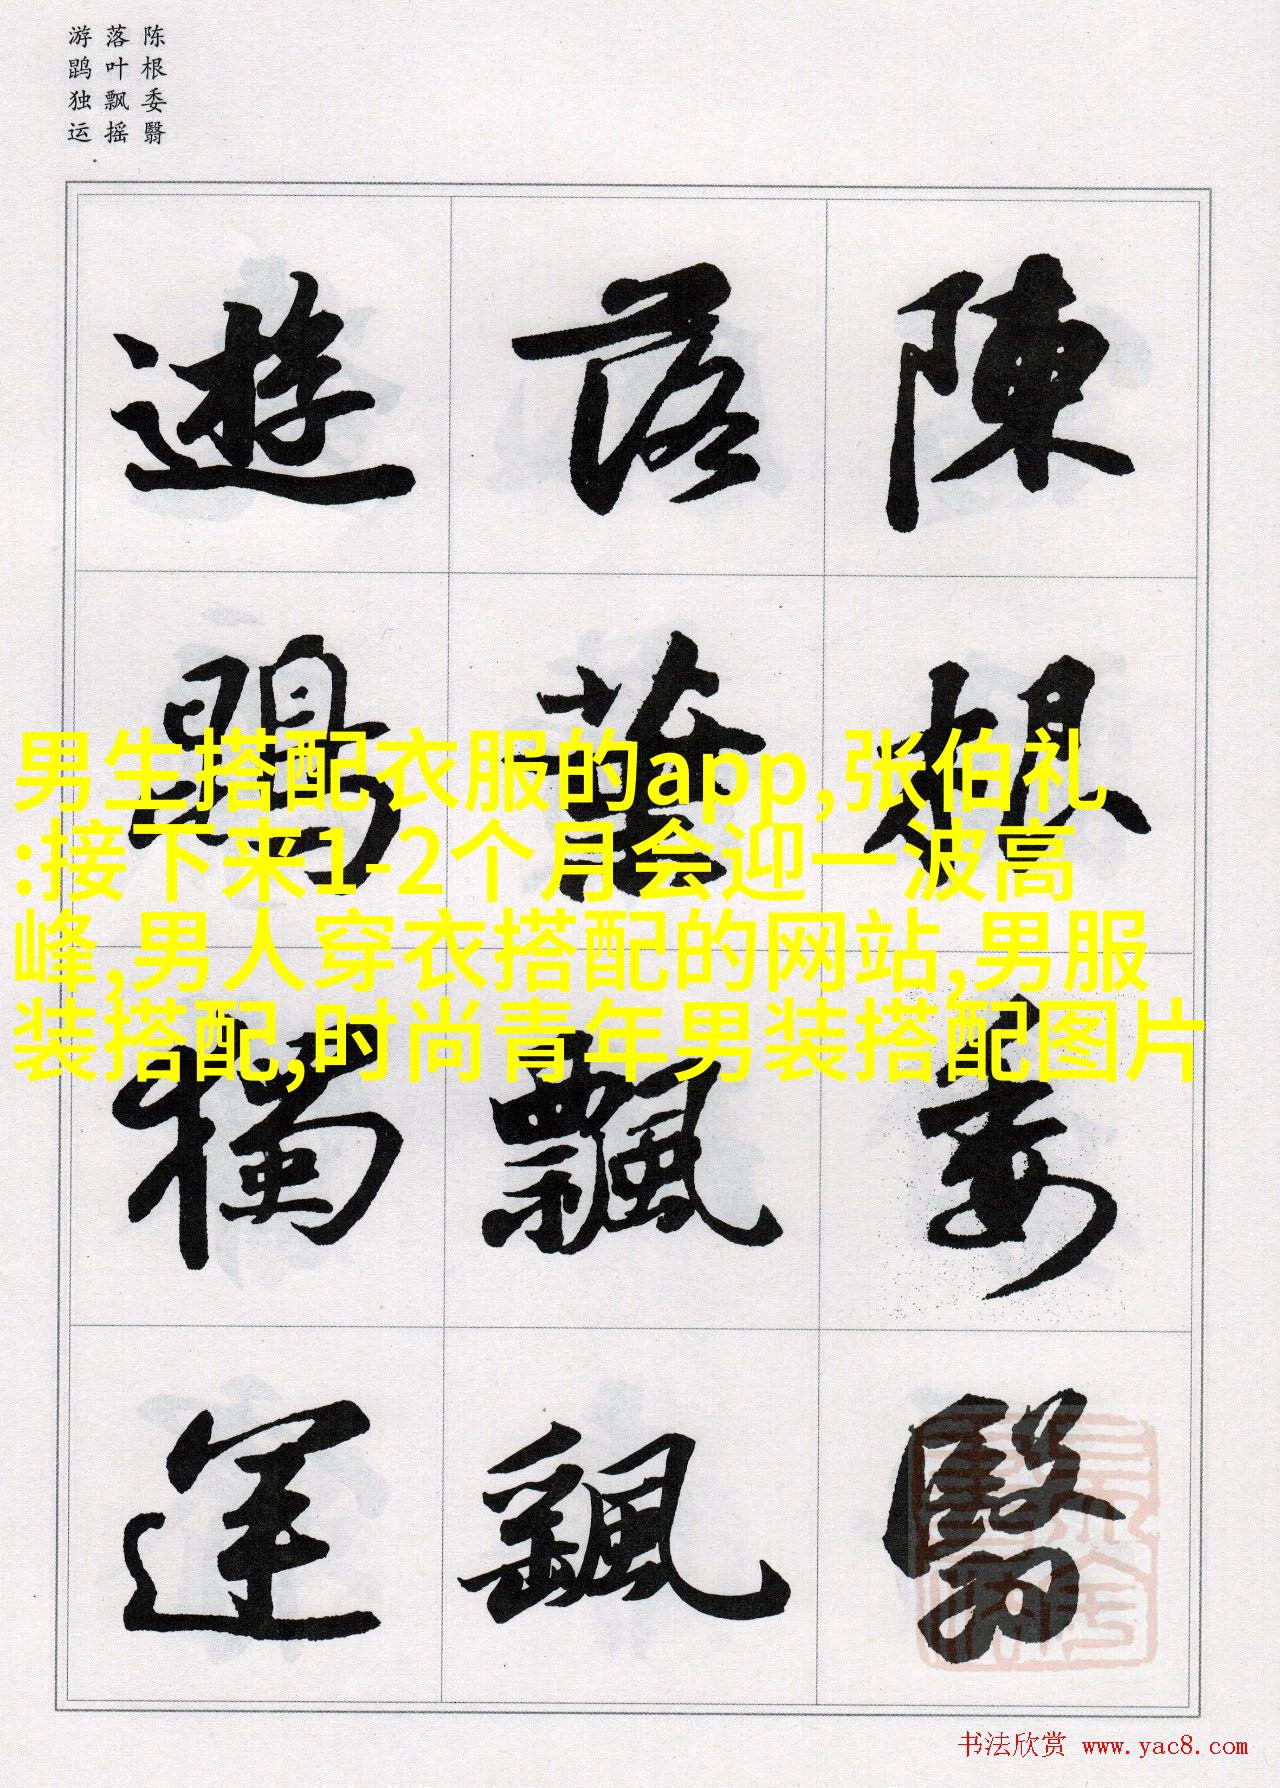 陈根委翳
落叶飘摇
游鹍独运
陳根委翳
落葉飄颻
遊鵾獨運
男生搭配衣服的app,张伯礼
:接下来1-2个月会迎一波高
峰,男人穿衣搭配的网站,男服
装搭配,时尚青年男装搭配图片
书法欣赏 www.yac8.com